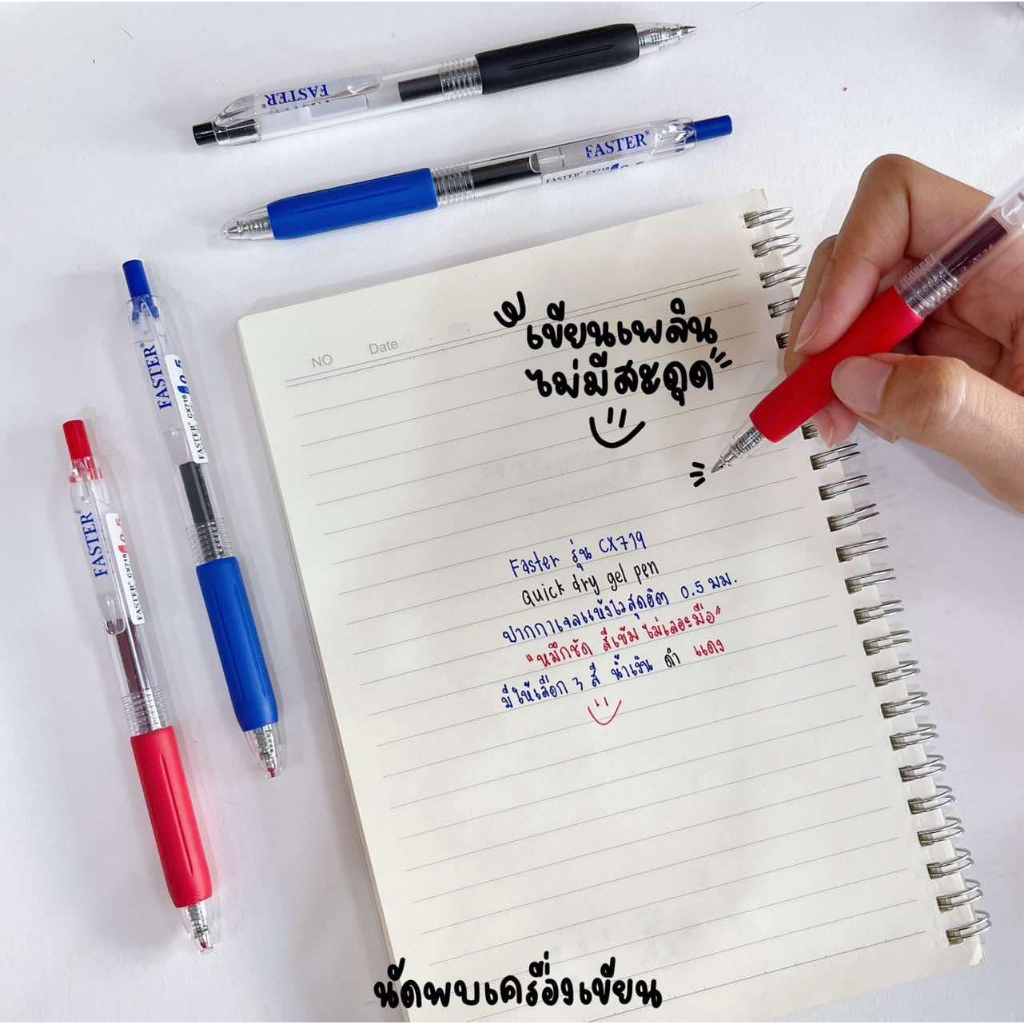 FASTER
FASTER
FASTER CX719 0.5
FASTER
FASTER CX719 0.5
FASTER
FASTER CX719 0.5
NO Date
เขียนเพลิน
ไม่มีสะดุด
Faster รุ่น CX719
quick dry gel pen
ปากกาเจลแห้งไวสุดฮิต 0.5 มม.
"หมึกชัด สีเข้ม ไม่เลอะมือ"
มีให้เลือก 3 สี น้ำเงิน ดำ แดง
นัดพบเครื่องเขียน